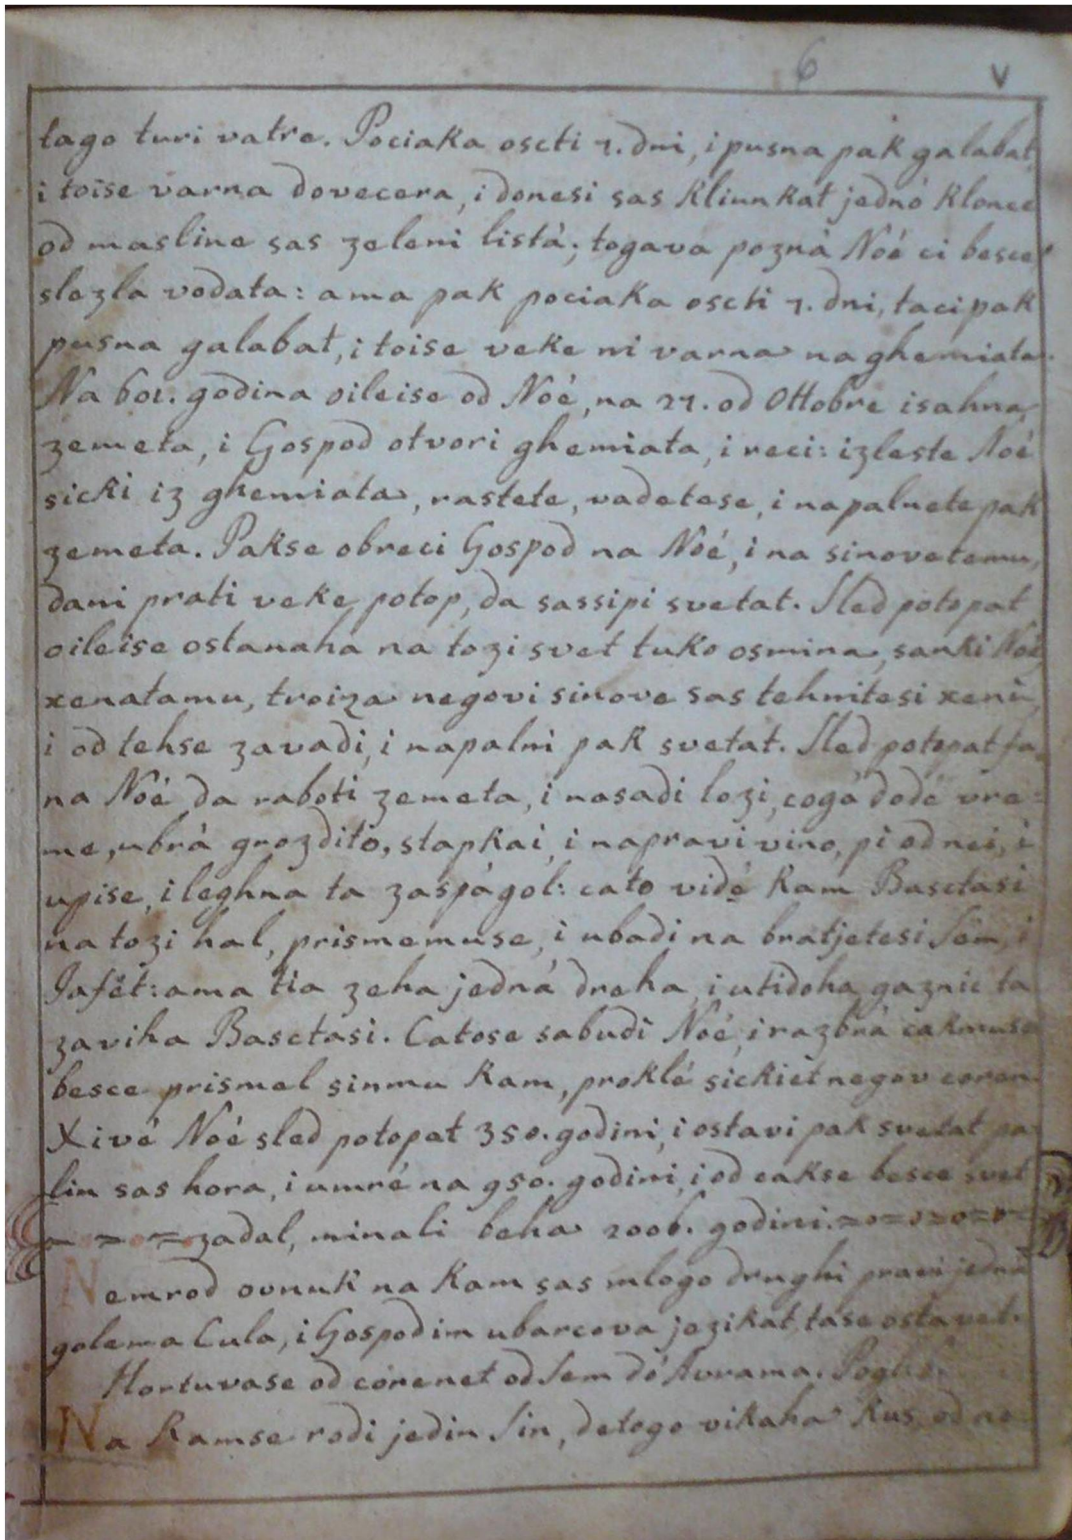 6 v
tago turi vatre. Pociaka oscti 7. dni, i pusna pak galabat,
i toise varna dovecera, i donesi sas kliunkat jednó klonce
od masline sas zeleni listá; togava pozná Noé ci besce
slezla vodata: ama pak pociaka oscti 7. dni, taci pak
pusna galabat, i toise veke ni varna na ghemiata.
Na 601. godina oileise od Noé, na 27. od Ottobre isahna
zemeta, i Gospod otvori ghemiata, i reci: izleste Noé
sicki iz ghemiata, rastete, vadetese, i napalnete pak
zemeta. Pakse obreci Gospod na Noé, i na sinovetemu,
dani prati veke potop, da sassipi svetat. Sled potopat
oileise ostanaha na tozi svet tuko osmina, sanki Noé
xenatamu, troiza negovi sinove sas tehnitesi xeni,
i od tehse zavadi, i napalni pak svetat. Sled potopat
na Noé da raboti zemeta, i nasadi lozi, cogá dodé vre=
me, ubrá grozdito, stapkai, i napravi vino, pi od nei, i
upise, i leghna ta zaspá gol: cato vidé Kam Basctasi
na tozi hal, prismemuse, i ubadi na bratjetesi Sem, i
Jafét: ama tia zeha jedná dreha, i utidoha gaznic ta
zaviha Basctasi. Catose sabudi Noé, i razbrá cakmuse
besce prismel sinmu Kam, proklé sickiet negov coren.
Xivé Noé sled potopat 350. godini, i ostavi pak svetat pa=
lin sas hora, i umré na 950. godini, i od cakse besce svet
zadal, minali beha 2006. godini.
Nemrod ovnuk na Kam sas mlogo drughi pravi jedná
golema Cula, i Gospodim ubarcova jezikat, tase ostavet.
Hortuvase od córenet od Sem dó Avrama.
Na Kamse rodi jedin Sin, detogo vikaha Kus, od ne=